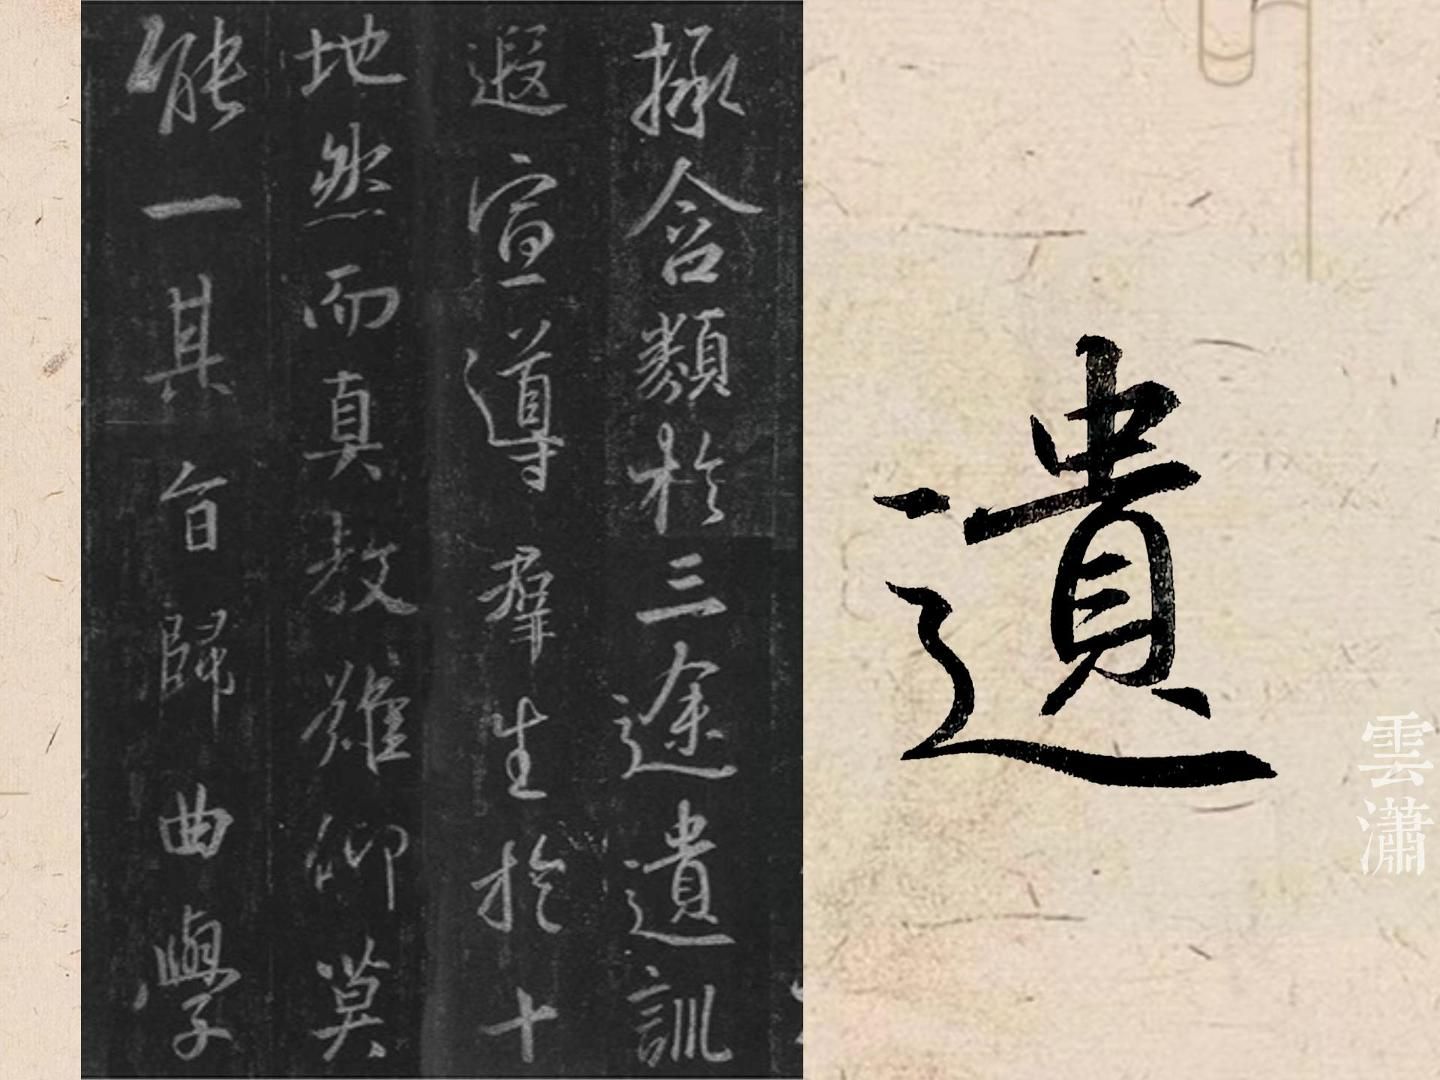 拯含類於三途遺訓
遐宣導羣生於十
地然而真教難仰莫
能一其旨歸曲學
遺
雲瀟